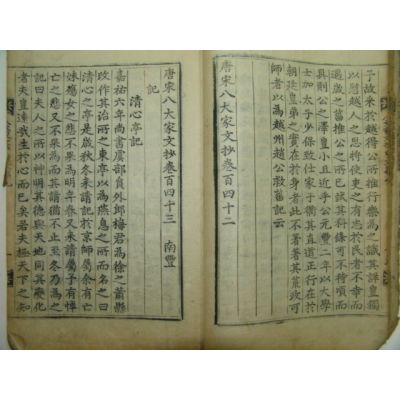 子故采於越得公所推行樂為之識其詳豈獨
以慰越人之思將使吏之有志於民者不幸而
遇歲之菑推公之所已試其科條可不待頃而
具則公之澤豈小且近乎公元豐二年以大學
士加太子少保致仕家于衢其直道正行在於
朝廷豈弟之實在於身者此不著著其荒政可
師者以為越州趙公救菑記云
唐宋八大家文抄卷百四十二
唐宋八大家文抄卷百四十三 南豐
記
清心亭記
嘉祐六年尚書虞部員外郎梅君為徐之蕭縣
改作其治所之東亭以為燕息之所而名之曰
清心之亭是歲秋冬來請記於京師屬余有亡
妹殤女之悲不果為明年春又來請屬予有悼
亡之悲又不果為而其請猶不止至冬乃為之
記曰夫人之所以神明其德與天地同其變化
者夫豈遠哉生於心而已矣若夫極天下之知